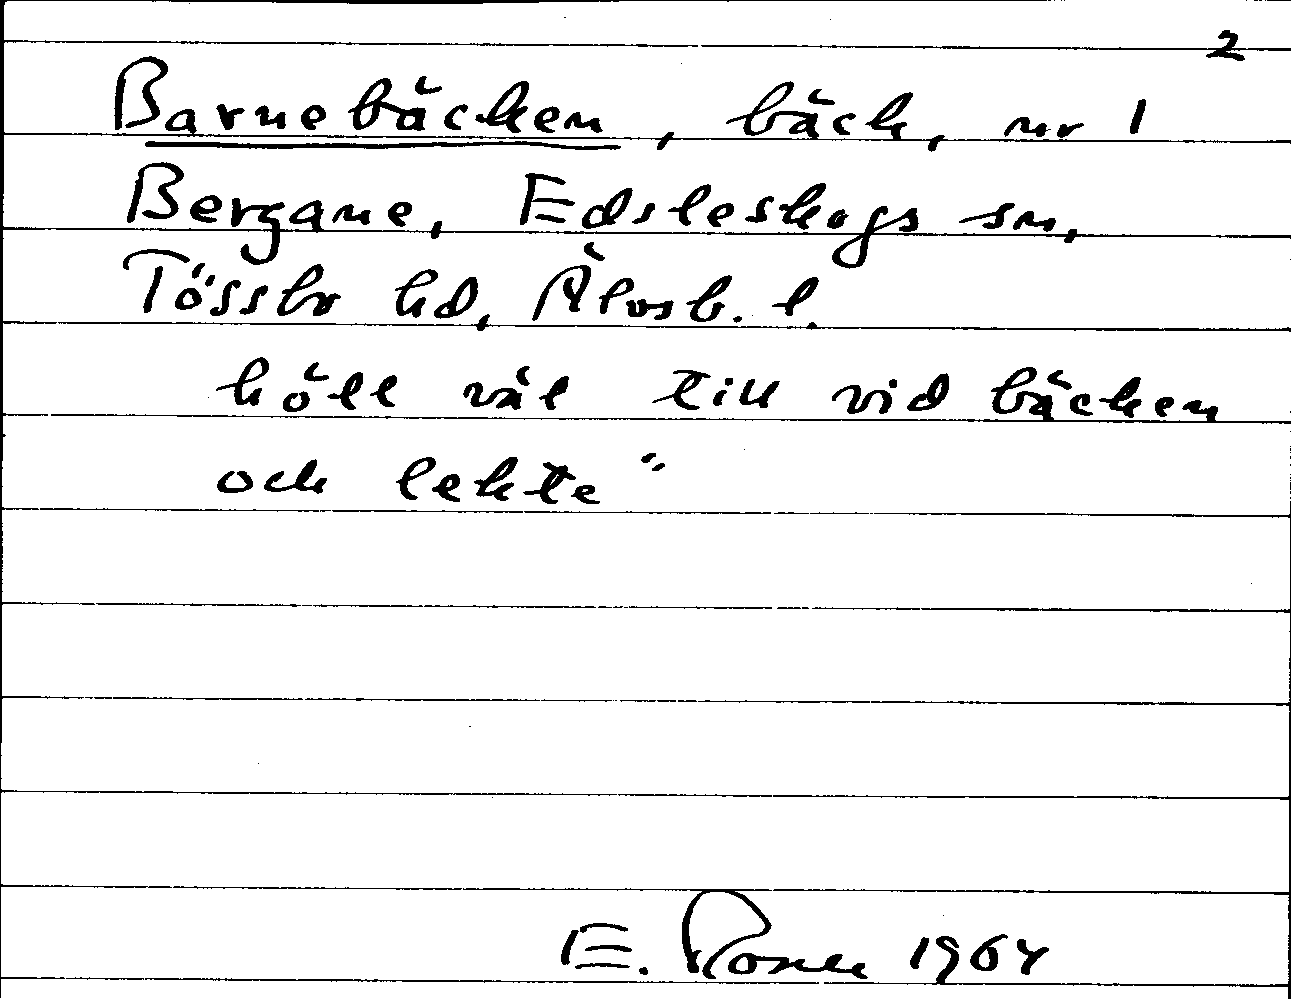 2
Barnebäcken, bäck, nr 1
Bergane, Edsleskogs sn,
Tössbo hd, Älvsb. l.
höll väl till vid bäcken
och lekte"
E. 1964